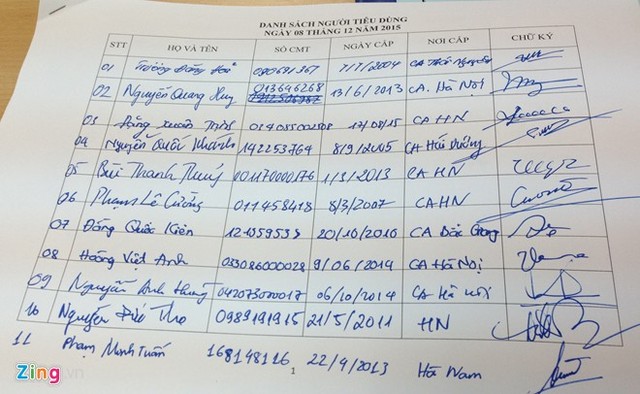 DANH SÁCH NGƯỜI TIÊU DÙNG
NGÀY 08 THÁNG 12 NĂM 2015
STT HỌ VÀ TÊN SỐ CMT NGÀY CẤP NƠI CẤP CHỮ KÝ
01 Trương Đăng 090691367 7/7/2004 CA Thái Nguyên
02 Nguyễn Quang Huy 013646268 13/6/2013 CA. Hà Nội
03 Đặng Xuân 17/08/15 CA HN
04 Nguyễn Quốc Khánh 142253764 8/9/2005 CA Hải Dương
05 Bùi Thanh Thuý 001170000176 1/3/2013 CA HN
06 Phạm Lê Cường 011458418 8/3/2007 CA HN
07 Đặng Quốc Kiên 121359539 20/10/2010 CA Bắc Giang
08 Hoàng Việt Anh 033086000028 9/06/2014 CA Hà Nội
09 Nguyễn Anh 042073000017 06/10/2014 CA Hà Nội
10 Nguyễn Đức Thọ 0989191915 21/5/2011 HN
11 Phạm Minh Tuấn 168148116 22/4/2013 Hà Nam
1
Zing.vn